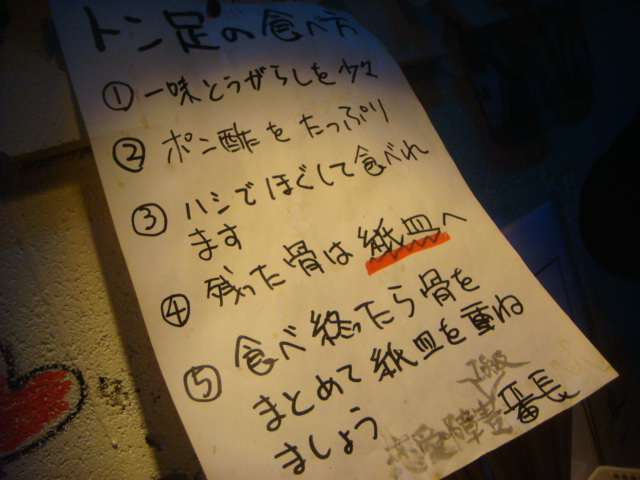 トン足の食べ方
① 一味とうがらしを少々
② ポン酢をたっぷり
③ ハシでほぐして食べれ
ます
④ 残った骨は紙皿へ
⑤ 食べ終ったら骨を
まとめて紙皿を重ね
ましょう
恋愛障害
番長